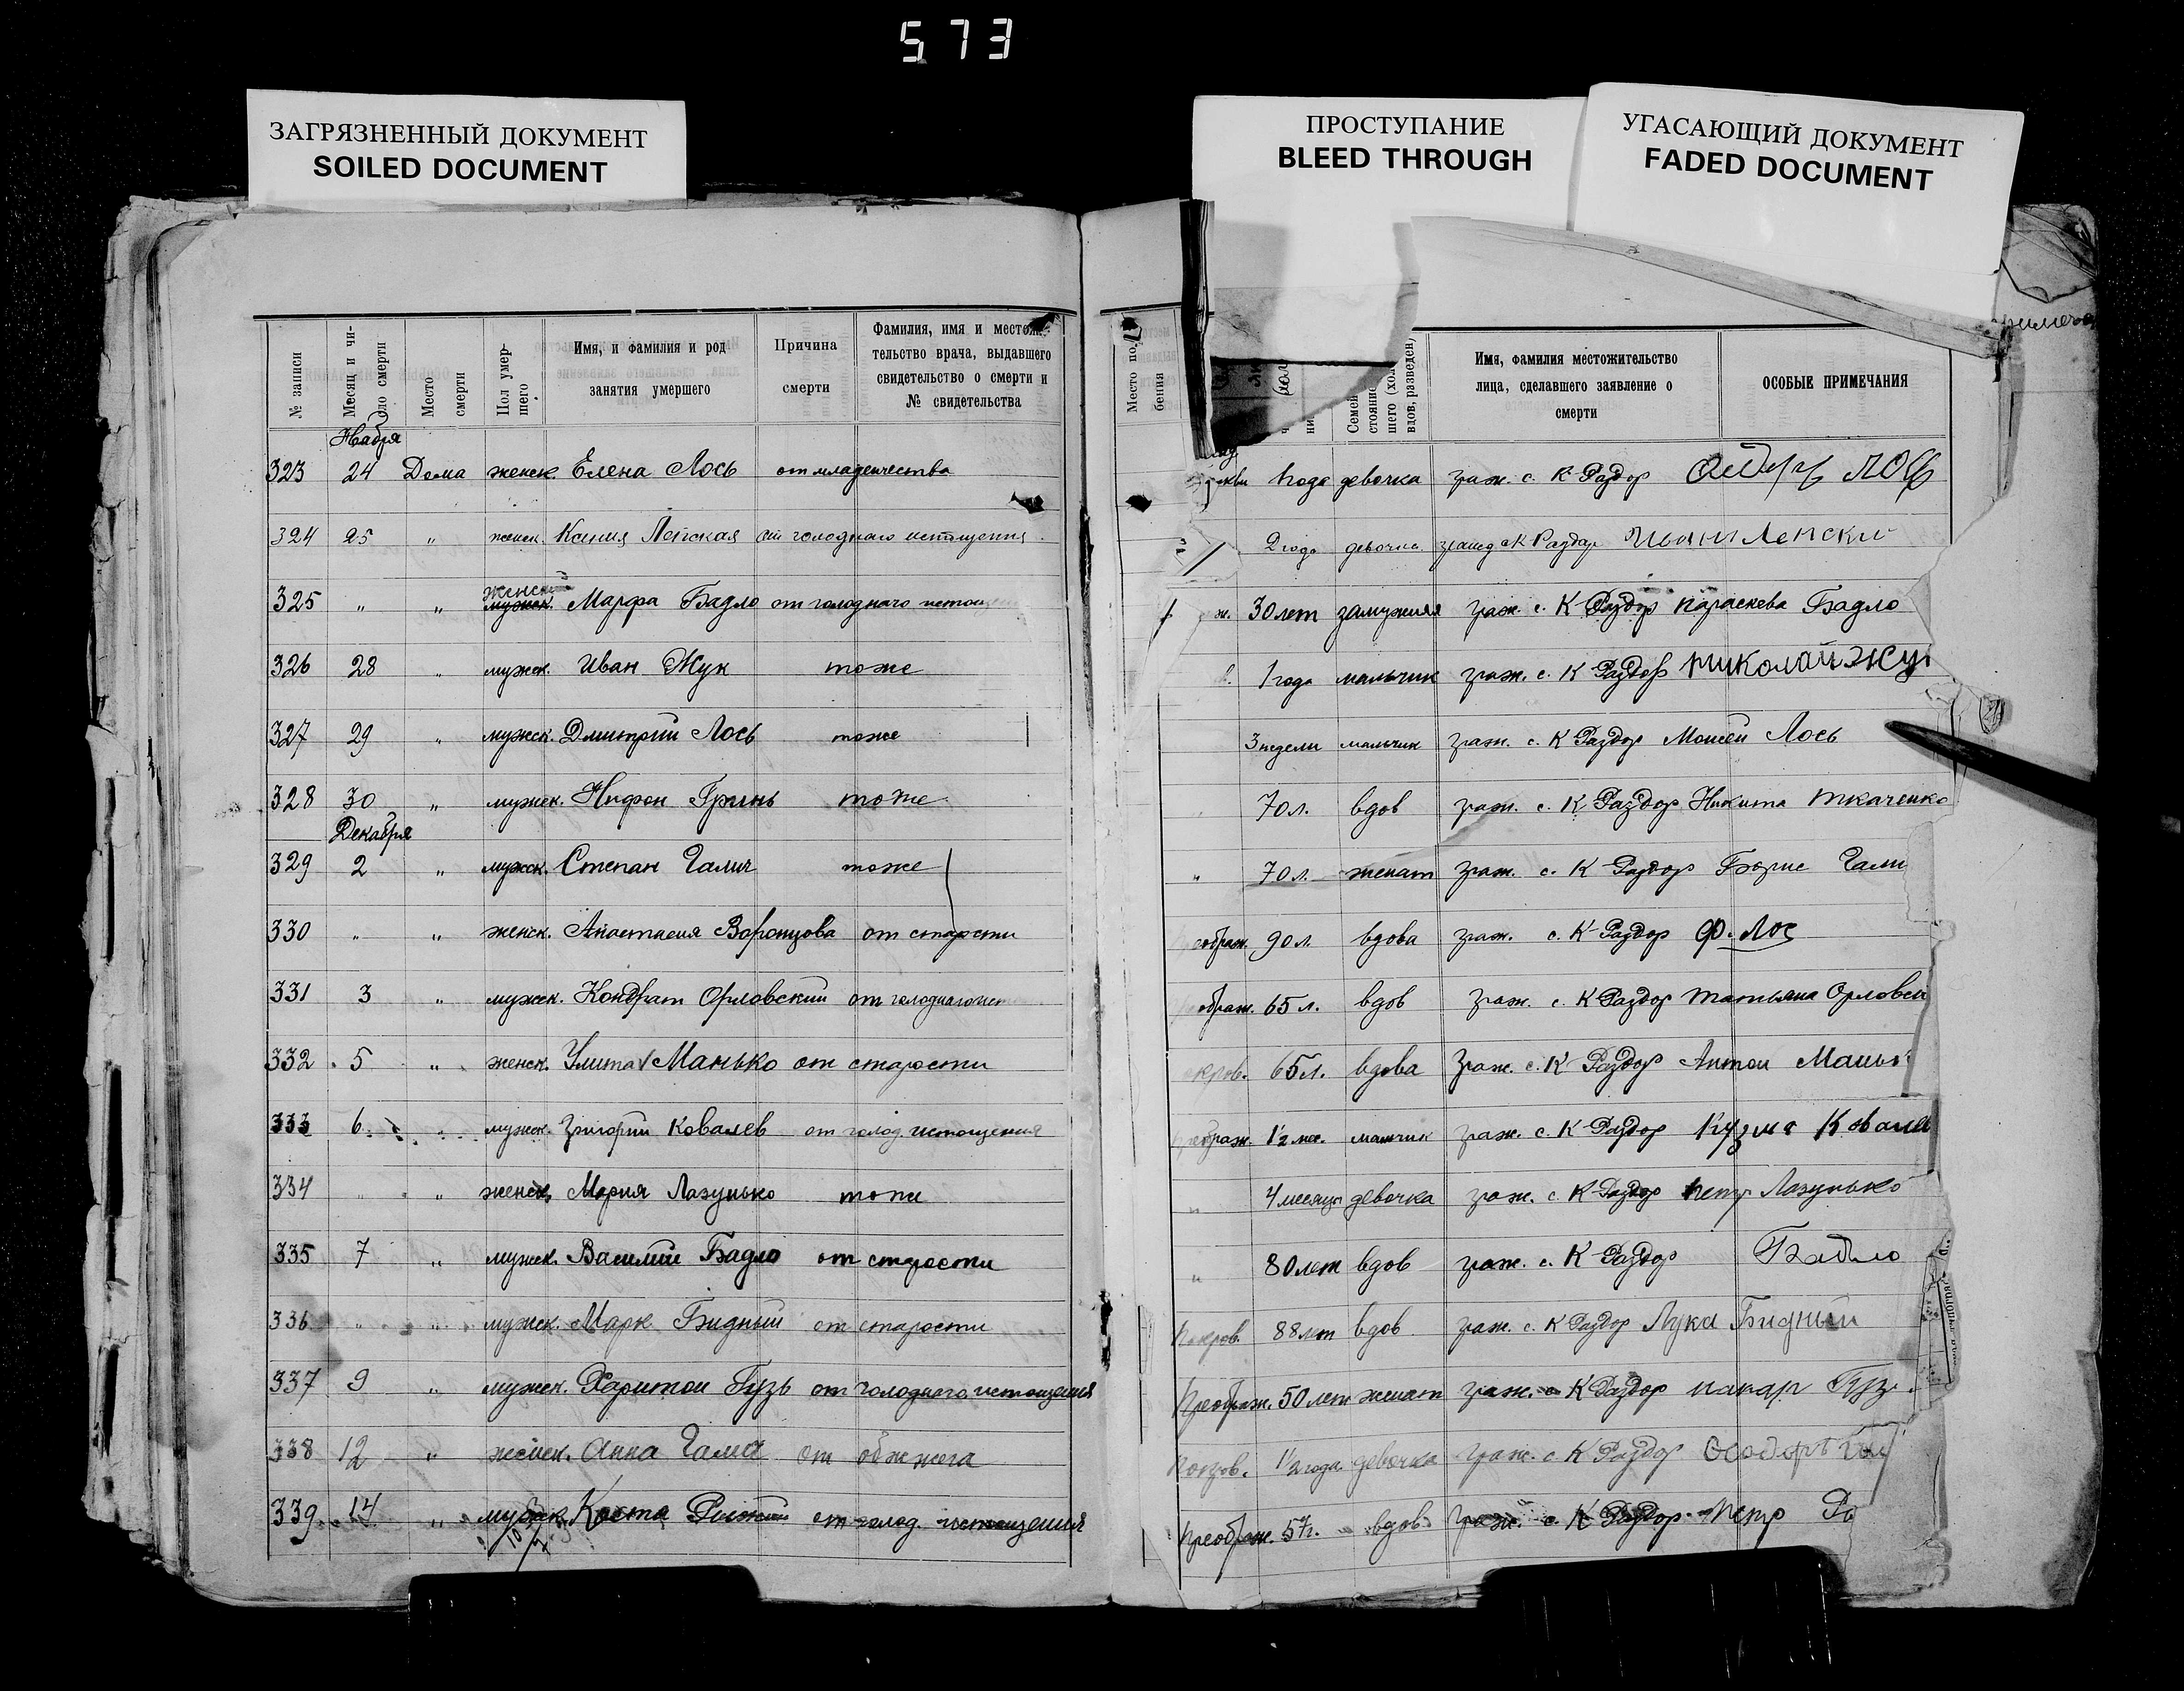 573
ЗАГРЯЗНЕННЫЙ ДОКУМЕНТ
SOILED DOCUMENT
ПРОСТУПАНИЕ
BLEED THROUGH
УГАСАЮЩИЙ ДОКУМЕНТ
FADED DOCUMENT
№ записи
Месяц и чи-
сло смерти
Место
смерти
Пол умер-
шего
Имя, и фамилия и род
занятия умершего
Причина
смерти
Фамилия, имя и местож-
тельство врача, выдавшего
свидетельство о смерти и
№ свидетельства
Место по
бения
Семей
стояние
шего (хол
вдов, разведен)
Имя, фамилия местожительство
лица, сделавшего заявление о
смерти
ОСОБЫЕ ПРИМЕЧАНИЯ
Ноября
323 24 Дома женск. Елена Лось от младенчества 1 года девочка граж. с. К Раздор Лось
324 25 " женск. Ксения Ленская от голоднаго истощения 2 года девочка К Раздор Иван Ленски
325 " " мужск. женский Марфа Бадло от голоднаго истощ ж. 30 лет замужняя граж. с. К Раздор Параскева Бадло
326 28 " мужск. Иван Жук тоже 1 года мальчик граж. с. К Раздор Николай Жу
327 29 " мужск. Дмитрий Лось тоже 3 недели мальчик граж. с. К Раздор Моисей Лось
328 30 " мужск. Нифон Гринь тоже 70 л. вдов граж. с. К Раздор Никита Ткаченко
Декабря
329 2 " мужск. Степан Галич тоже " 70 л. женат граж. с. К Раздор Борис Гали
330 " " женск. Анастасия Воронцова от старости еображ. 90 л. вдова граж. с. К Раздор Ф. Лос
331 3 " мужск. Кондрат Орловский от голоднаго ист ображ. 65 л. вдов граж. с. К Раздор Татьяна Орловск
332 5 " женск. Улита Манько от старости окров. 65 л. вдова граж. с. К Раздор Антон Маньк
333 6 " мужск. Григорий Ковалев от голод. истощения Преображ. 1½ мес. мальчик граж. с. К Раздор Кузма Ковале
334 " " женск. Мария Лазунько тоже " 4 месяца девочка граж. с. К Раздор Петр Лазунько
335 7 " мужск. Василий Бадло от старости " 80 лет вдов граж. с. К Раздор Бадло
336 " " мужск. Марк Бидный от старости Покров. 88 лет вдов граж. с. К Раздор Лука Бидный
337 9 " мужск. Харитон Гузь от голоднаго истощения Преображ. 50 лет женат граж. с К Раздор Макар Гуз
338 12 " женск. Анна от обжега Покров. ½ года девочка граж. с. К Раздор
339 14 " мужск. Коста от голод. истощения Преображ. 57 г. вдов граж. с. К Раздор Петр